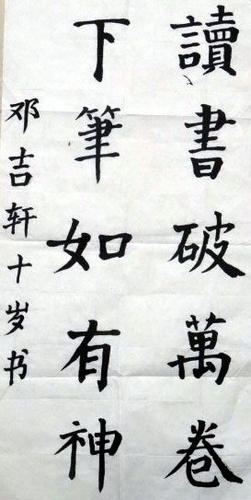 讀書破萬卷
下筆如有神
邓吉轩十岁书